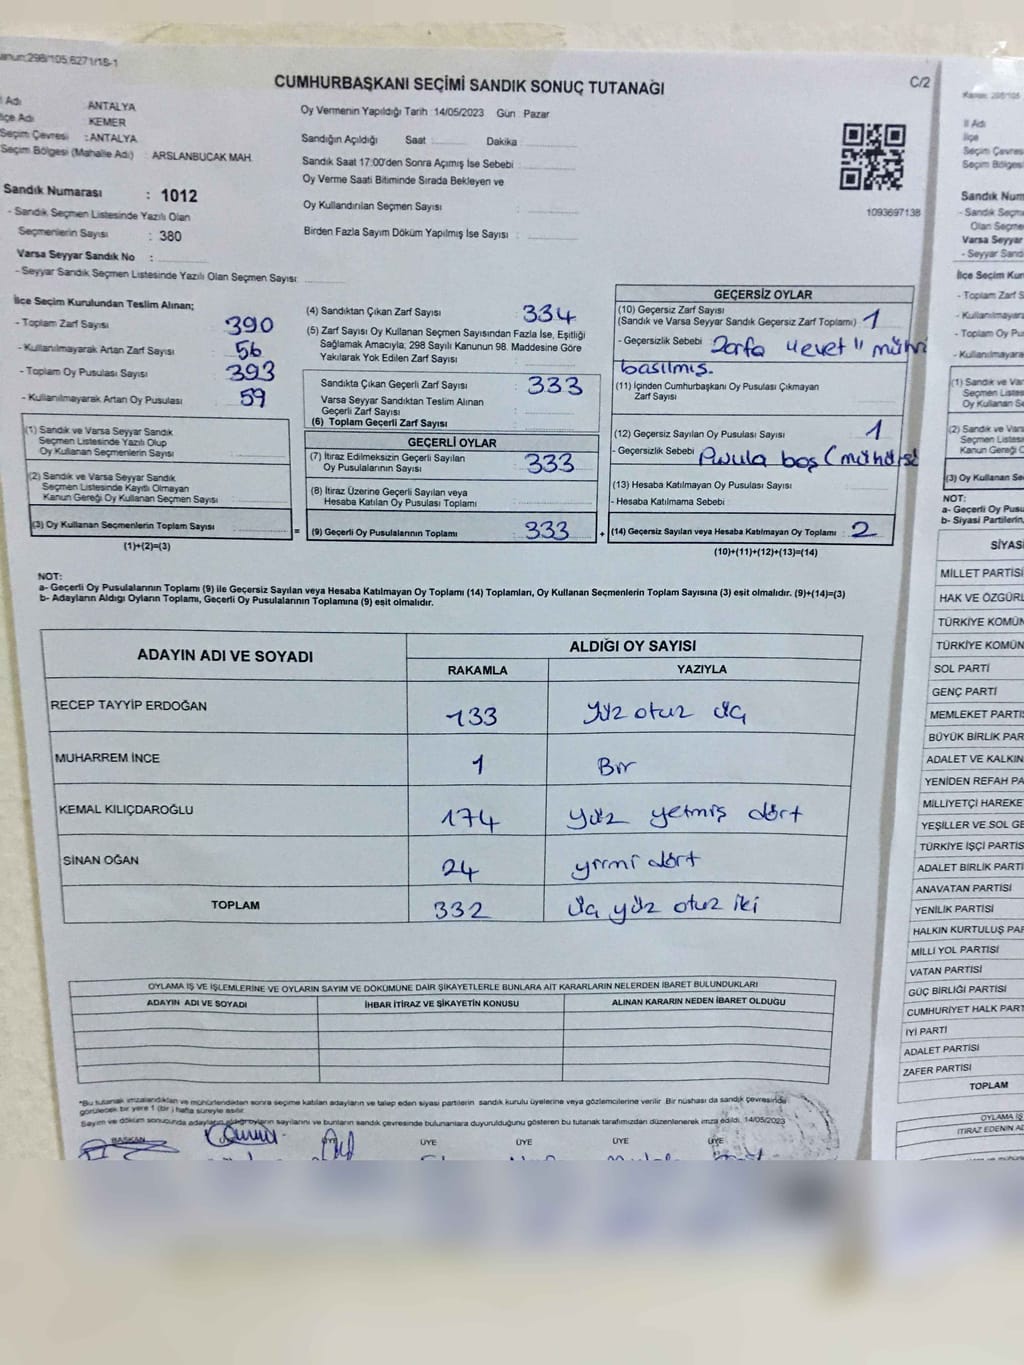 anun:298/105,6271/18-1
CUMHURBAŞKANI SEÇİMİ SANDIK SONUÇ TUTANAĞI
C/2
l Adı ANTALYA
lçe Adı KEMER
Seçim Çevresi : ANTALYA
Seçim Bölgesi (Mahalle Adı) : ARSLANBUCAK MAH.
Sandık Numarası : 1012
- Sandık Seçmen Listesinde Yazılı Olan
Seçmenlerin Sayısı : 380
Varsa Seyyar Sandık No :
- Seyyar Sandık Seçmen Listesinde Yazılı Olan Seçmen Sayısı:
Oy Vermenin Yapıldığı Tarih :14/05/2023 Gün : Pazar
Sandığın Açıldığı Saat Dakika
Sandık Saat 17:00'den Sonra Açımış İse Sebebi :
Oy Verme Saati Bitiminde Sırada Bekleyen ve
Oy Kullandırılan Seçmen Sayısı :
Birden Fazla Sayım Döküm Yapılmış İse Sayısı :
1093697138
İlçe Seçim Kurulundan Teslim Alınan;
- Toplam Zarf Sayısı : 390
- Kullanılmayarak Artan Zarf Sayısı : 56
- Toplam Oy Pusulası Sayısı : 393
- Kullanılmayarak Artan Oy Pusulası : 59
(1) Sandık ve Varsa Seyyar Sandık
Seçmen Listesinde Yazılı Olup
Oy Kullanan Seçmenlerin Sayısı :
(2) Sandık ve Varsa Seyyar Sandık
Seçmen Listesinde Kayıtlı Olmayan
Kanun Gereği Oy Kullanan Seçmen Sayısı :
(3) Oy Kullanan Seçmenlerin Toplam Sayısı :
(1)+(2)=(3)
(4) Sandıktan Çıkan Zarf Sayısı : 334
(5) Zarf Sayısı Oy Kullanan Seçmen Sayısından Fazla İse, Eşitliği
Sağlamak Amacıyla, 298 Sayılı Kanunun 98. Maddesine Göre
Yakılarak Yok Edilen Zarf Sayısı :
Sandıkta Çıkan Geçerli Zarf Sayısı : 333
Varsa Seyyar Sandıktan Teslim Alınan
Geçerli Zarf Sayısı :
(6) Toplam Geçerli Zarf Sayısı :
GEÇERLİ OYLAR
(7) İtiraz Edilmeksizin Geçerli Sayılan
Oy Pusulalarının Sayısı : 333
(8) İtiraz Üzerine Geçerli Sayılan veya
Hesaba Katılan Oy Pusulası Toplamı :
= (9) Geçerli Oy Pusulalarının Toplamı : 333
GEÇERSİZ OYLAR
(10) Geçersiz Zarf Sayısı
(Sandık ve Varsa Seyyar Sandık Geçersiz Zarf Toplamı) : 1
- Geçersizlik Sebebi : Zarfa "evet" mührü
basılmış.
(11) İçinden Cumhurbaşkanı Oy Pusulası Çıkmayan
Zarf Sayısı
(12) Geçersiz Sayılan Oy Pusulası Sayısı : 1
- Geçersizlik Sebebi : Pusula boş (mühürsüz
(13) Hesaba Katılmayan Oy Pusulası Sayısı :
- Hesaba Katmama Sebebi :
+ (14) Geçersiz Sayılan veya Hesaba Katılmayan Oy Toplamı : 2
(10)+(11)+(12)+(13)=(14)
NOT:
a- Geçerli Oy Pusulalarının Toplamı (9) ile Geçersiz Sayılan veya Hesaba Katılmayan Oy Toplamı (14) Toplamları, Oy Kullanan Seçmenlerin Toplam Sayısına (3) eşit olmalıdır. (9)+(14)=(3)
b- Adayların Aldığı Oyların Toplamı, Geçerli Oy Pusulalarının Toplamına (9) eşit olmalıdır.
ADAYIN ADI VE SOYADI
ALDIĞI OY SAYISI
RAKAMLA YAZIYLA
RECEP TAYYİP ERDOĞAN 133 Yüz otuz üç
MUHARREM İNCE 1 Bir
KEMAL KILIÇDAROĞLU 174 yüz yetmiş dört
SİNAN OĞAN 24 yirmi dört
TOPLAM 332 üç yüz otuz iki
OYLAMA İŞ VE İŞLEMLERİNE VE OYLARIN SAYIM VE DÖKÜMÜNE DAİR ŞİKAYETLERLE BUNLARA AİT KARARLARIN NELERDEN İBARET BULUNDUKLARI
ADAYIN ADI VE SOYADI İHBAR İTİRAZ VE ŞİKAYETİN KONUSU ALINAN KARARIN NEDEN İBARET OLDUĞU
*Bu tutanak imzalandıktan ve mühürlendikten sonra seçime katılan adayların ve talep eden siyasi partilerin sandık kurulu üyelerine veya gözlemcilerine verilir. Bir nüshası da sandık çevresinde
görülecek bir yere 1 (bir) hafta süreyle asılır.
Sayım ve döküm sonucunda adayların aldığı oyların sayılarını ve bunların sandık çevresinde bulunanlara duyurulduğunu gösteren bu tutanak tarafımızdan düzenlenerek imza edildi. 14/05/2023
BAŞKAN ÜYE ÜYE ÜYE ÜYE
Kanun: 298/105
İl Adı
İlçe
Seçim Çevres
Seçim Bölges
Sandık Num
- Sandık Seçme
Olan Seçme
Varsa Seyyar
- Seyyar Sand
İlçe Seçim Kur
- Toplam Zarf S
- Kullanılmayara
- Toplam Oy Pus
- Kullanılmayara
(1) Sandık ve Var
Seçmen Listes
Oy Kullanan Se
(2) Sandık ve Vars
Seçmen Listesi
Kanun Gereği O
(3) Oy Kullanan Se
NOT:
a- Geçerli Oy Pusu
b- Siyasi Partilerin,
SİYAS
MİLLET PARTİSİ
HAK VE ÖZGÜRL
TÜRKİYE KOMÜN
TÜRKİYE KOMÜN
SOL PARTİ
GENÇ PARTİ
MEMLEKET PARTİS
BÜYÜK BİRLİK PAR
ADALET VE KALKIN
YENİDEN REFAH PA
MİLLİYETÇİ HAREKE
YEŞİLLER VE SOL GE
TÜRKİYE İŞÇİ PARTİS
ADALET BİRLİK PARTİ
ANAVATAN PARTİSİ
YENİLİK PARTİSİ
HALKIN KURTULUŞ PAR
MİLLİ YOL PARTİSİ
VATAN PARTİSİ
GÜÇ BİRLİĞİ PARTİSİ
CUMHURİYET HALK PART
İYİ PARTİ
ADALET PARTİSİ
ZAFER PARTİSİ
TOPLAM
OYLAMA İŞ
İTİRAZ EDENİN AD